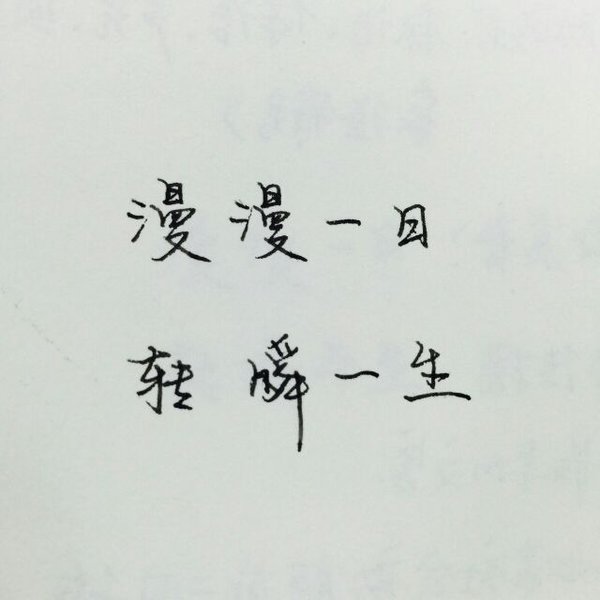 漫漫一日
转瞬一生